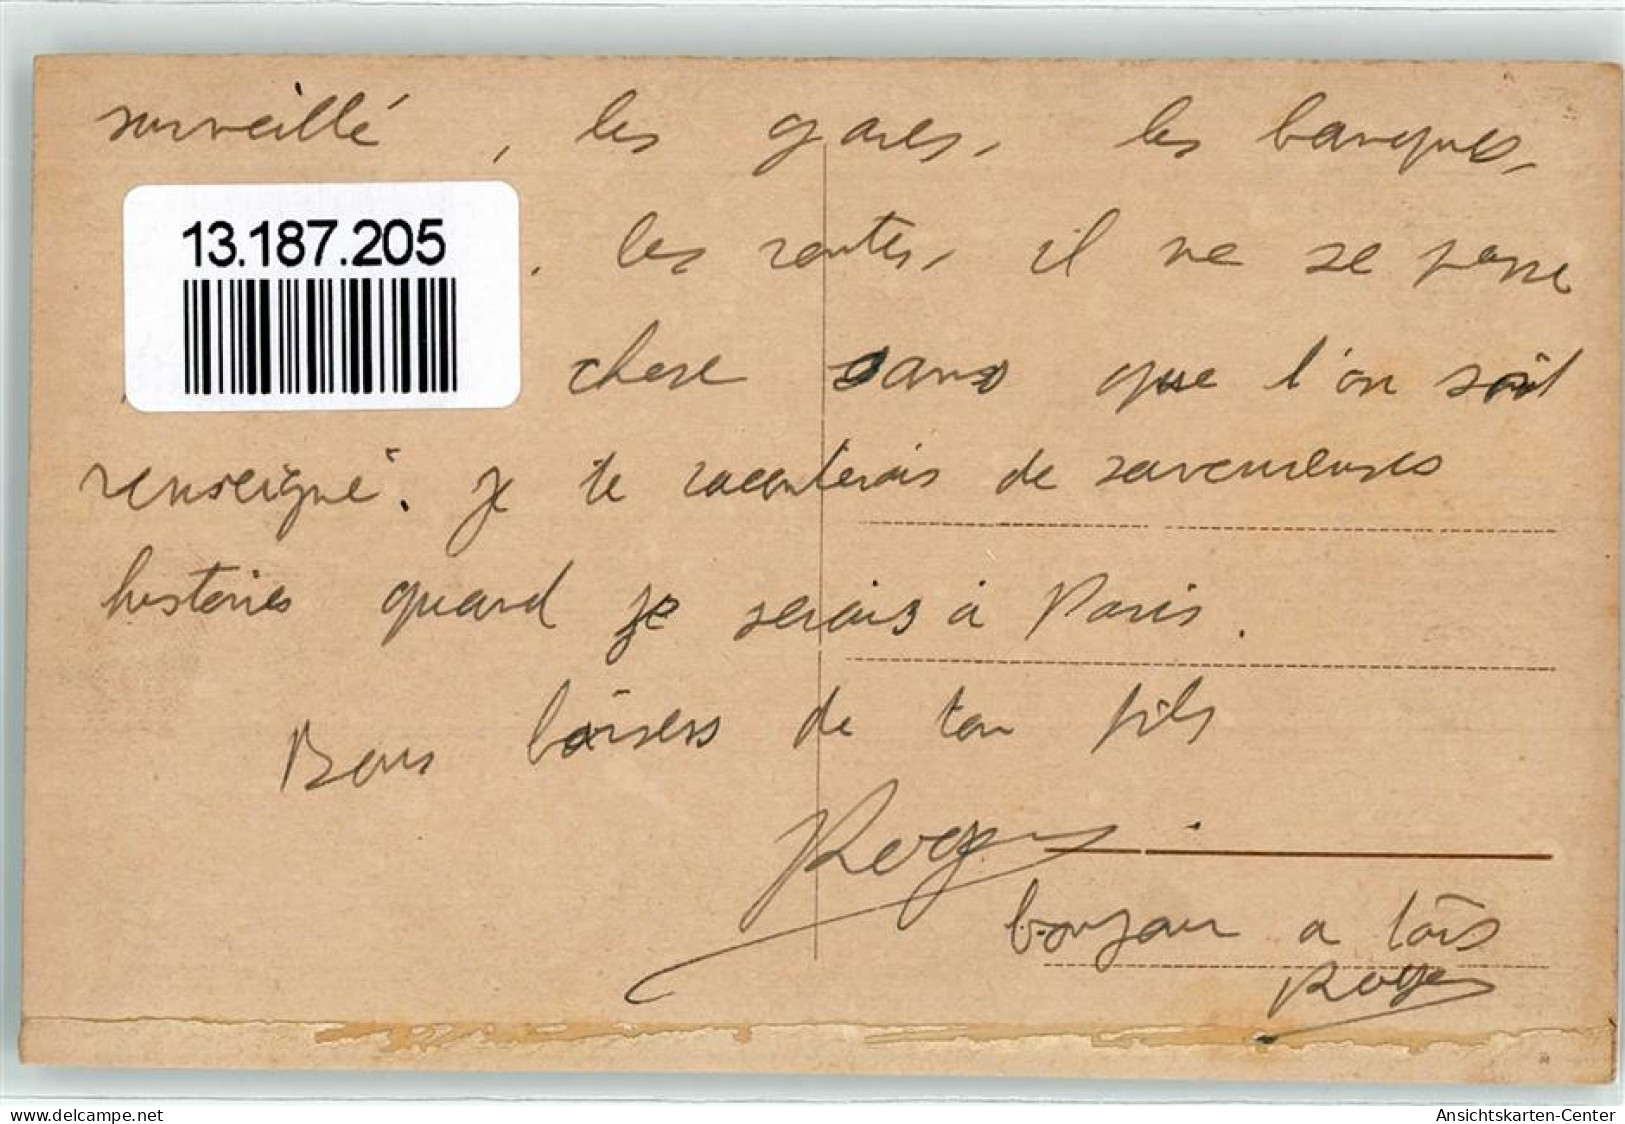 surveillé, les gares, les banques,
13.187.205
, les routes, il ne se passe
chose sans que l'on soit
renseigné. Je te raconterais de savoureuses
histoires quand je serais à Paris.
Bons baisers de ton fils
Roger
bonjour a Loïs
Roger
delcampe.net
Ansichtskarten-Center